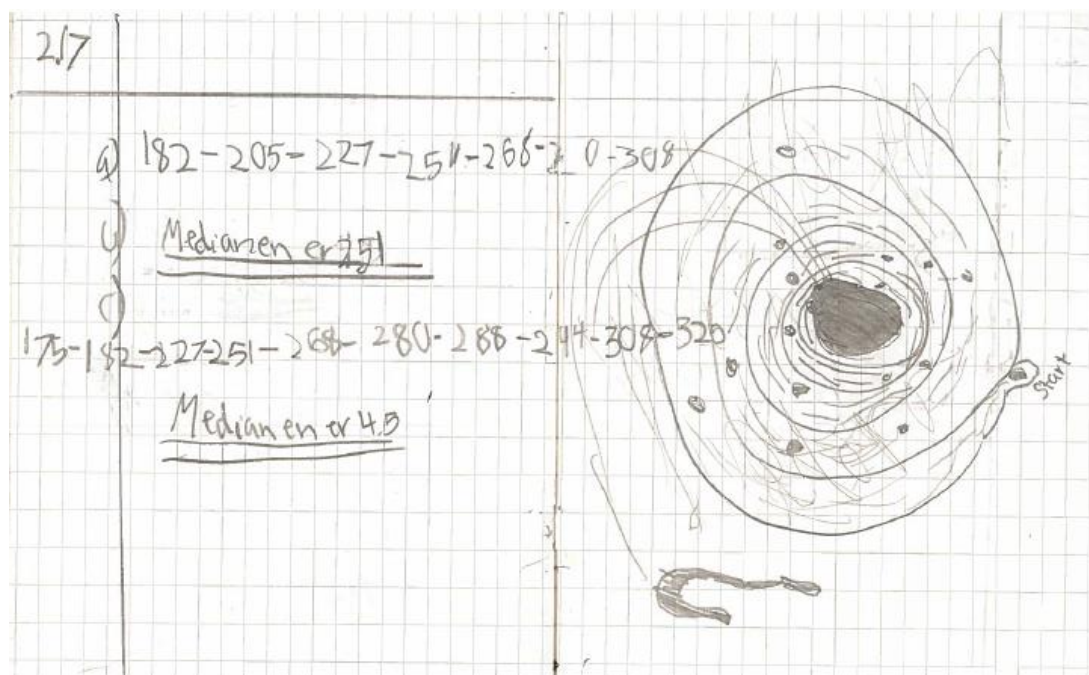 2.17
a) 182-205-227-251-268-2 0-308
b) Medianen er 251
c)
175-182-227-251-268-280-288-294-308-320
Medianen er 4.5
Start